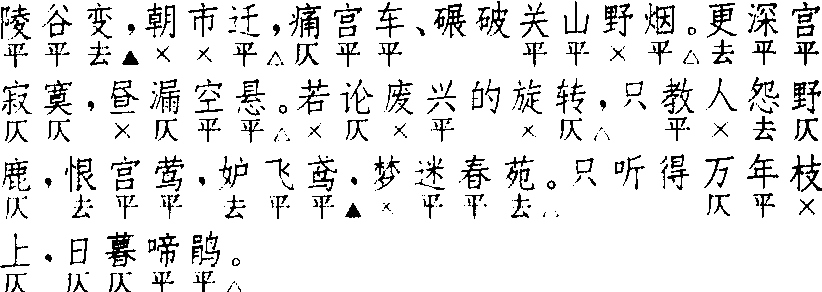 陵谷变，朝市迁，痛宫车、碾破关山野烟。更深宫
平平去▲××平△仄平平　平平×平△去平平
寂寞，昼漏空悬。若论废兴的旋转，只教人怨野
仄仄×仄平平△×仄×平×仄△平×去仄
鹿，恨宫莺，妒飞鸢，梦迷春苑。只听得万年枝
仄去平平去平平▲×平平去△仄平×
上，日暮啼鹃。
仄仄仄平平△